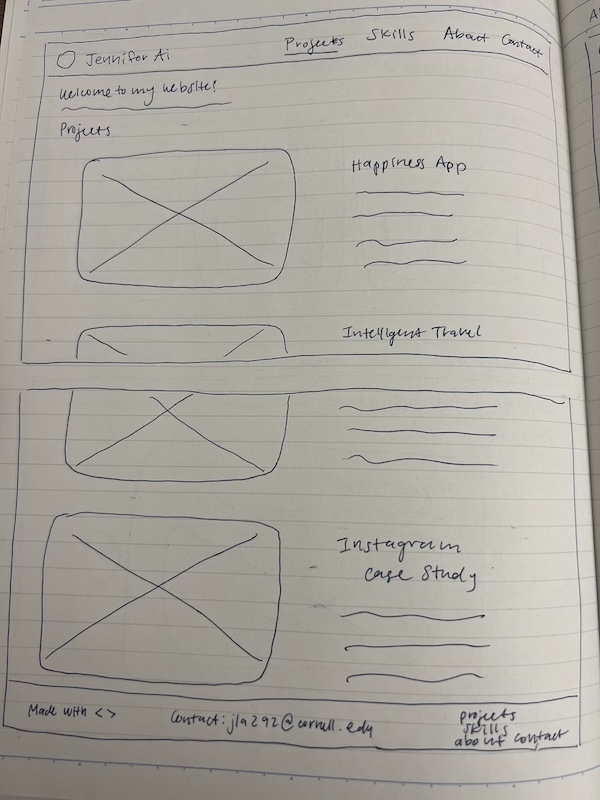 Jennifer Ai
Projects Skills About Contact
Welcome to my website!
Projects
Happiness App
Intelligent Travel
Instagram
Case Study
Made with <>
Contact: jla292@cornell.edu
projects
skills
about contact